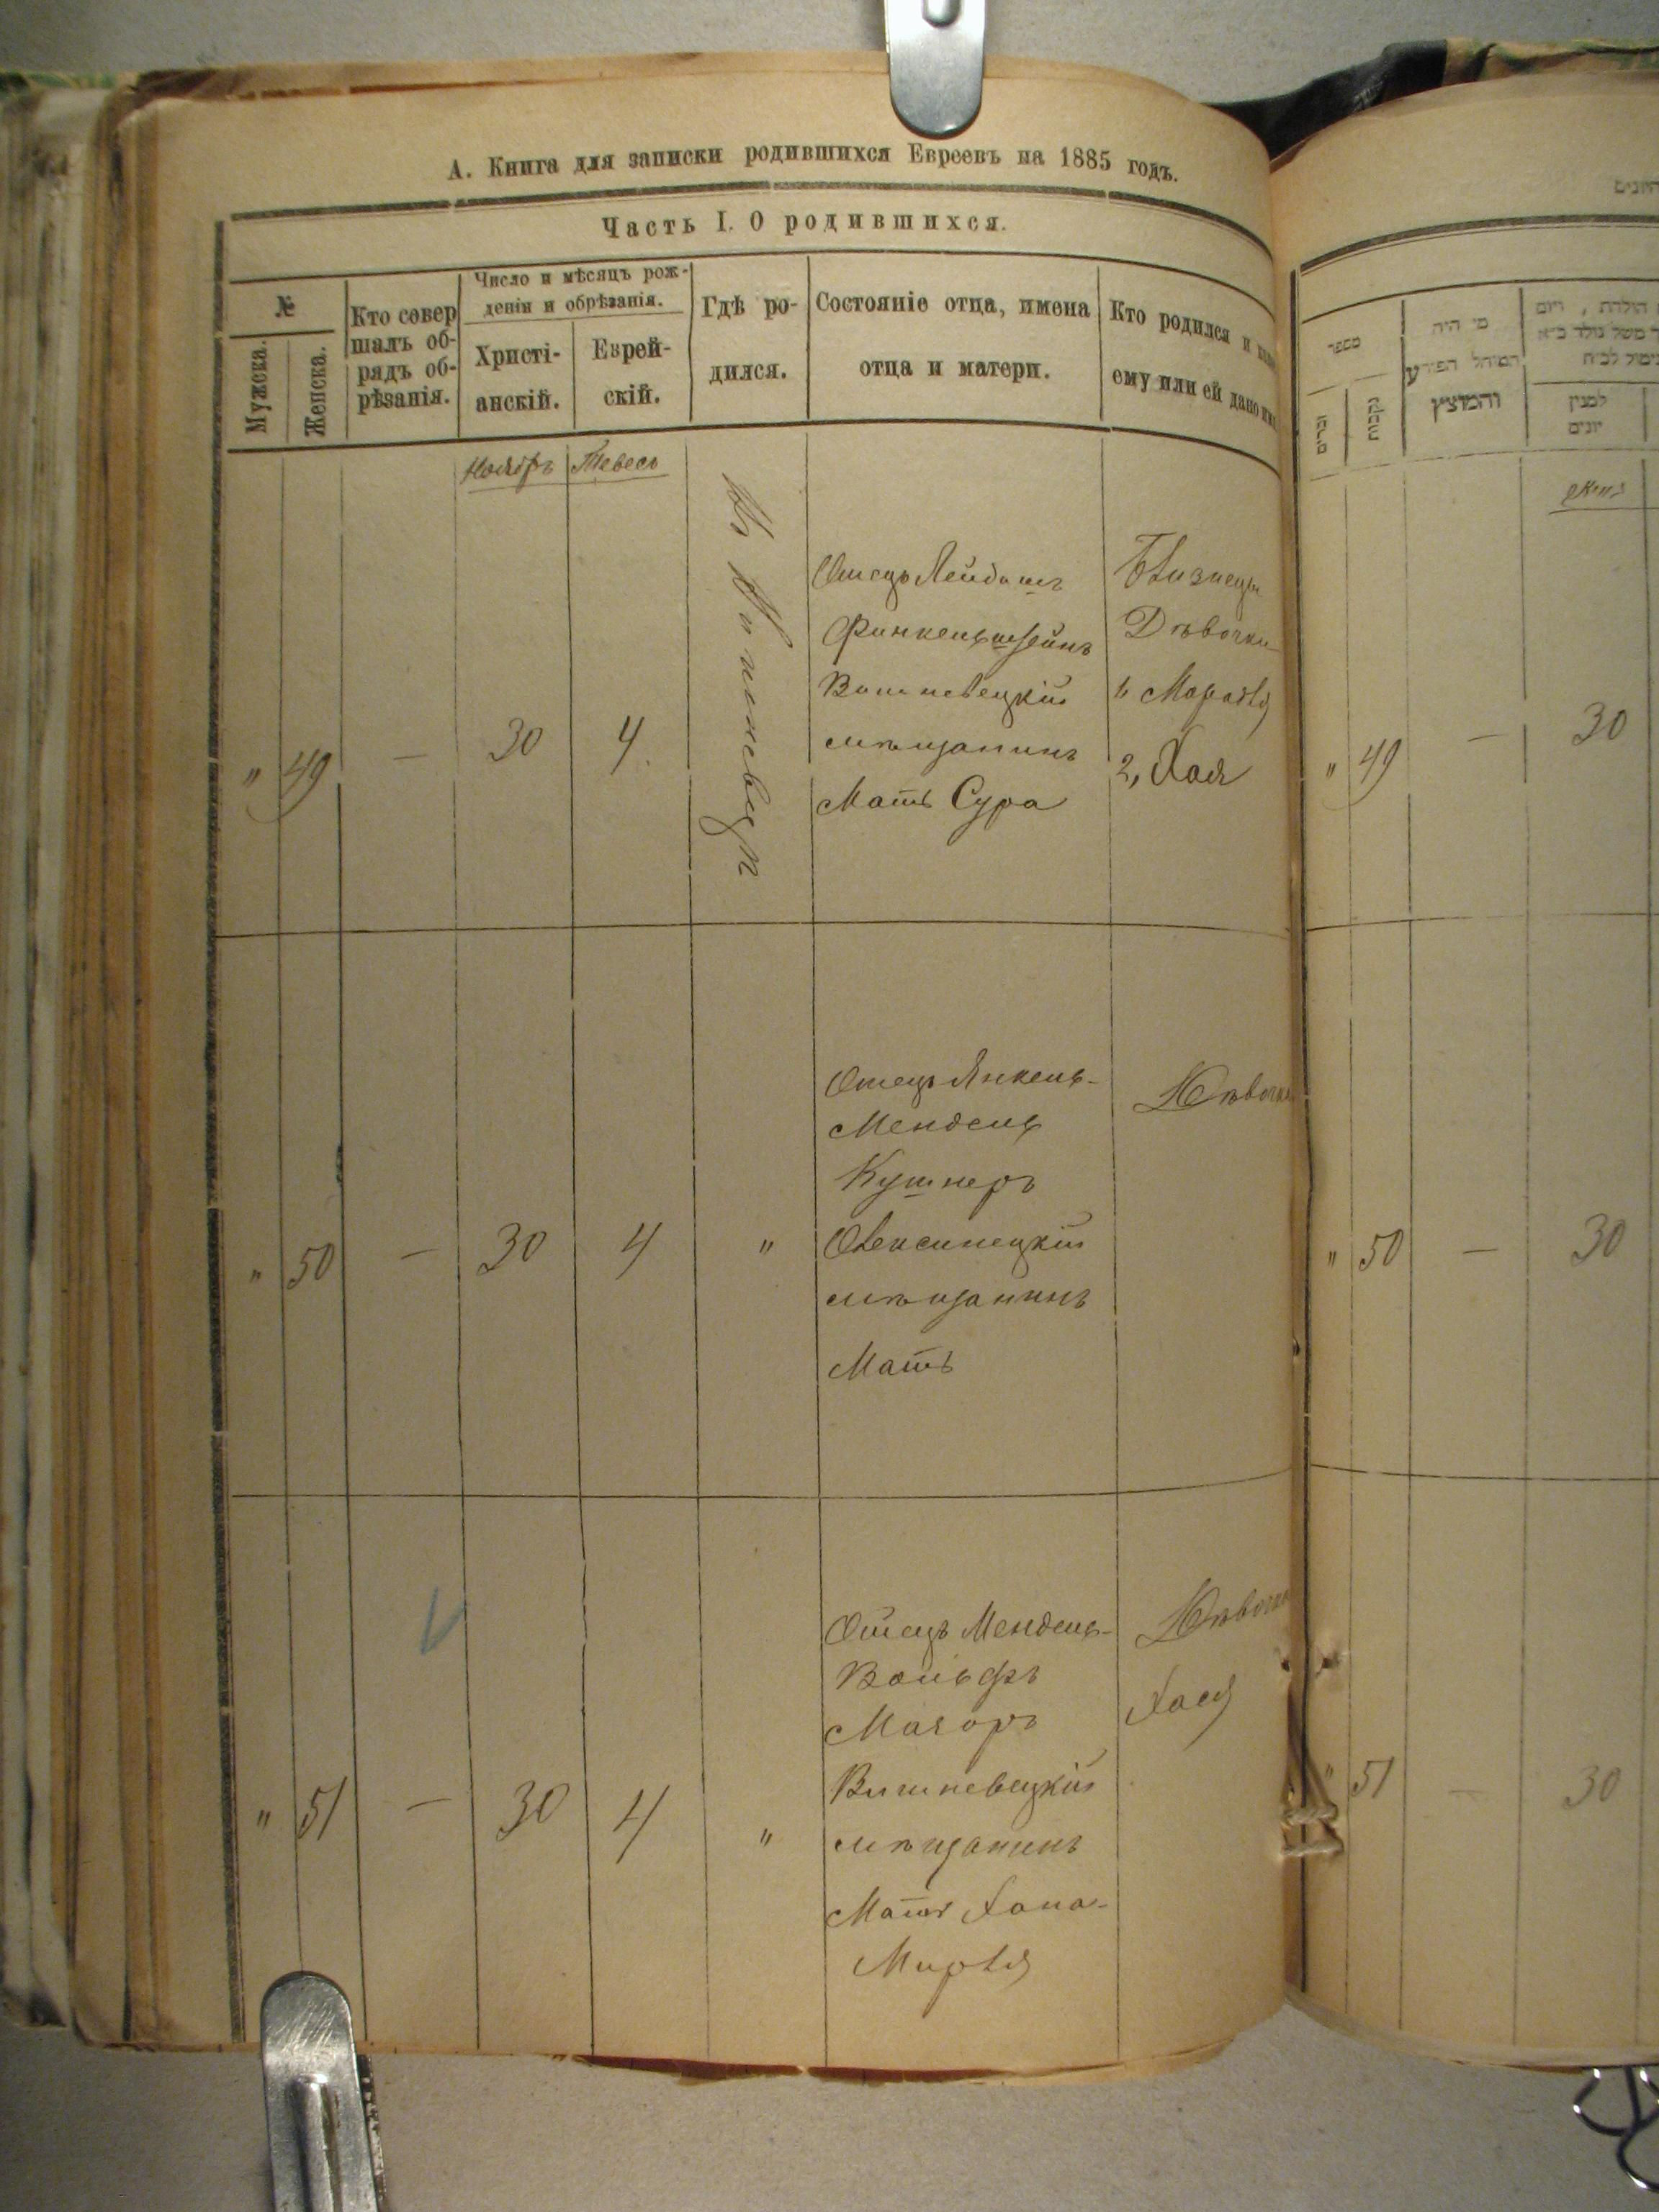 А. Книга для записки родившихся Евреевъ на 1885 годъ.
Часть I. О родившихся.
№
Мужска.
Женска.
Кто совер
шалъ об-
рядъ об-
рѣзанія.
Число и мѣсяцъ рож-
денія и обрѣзанія.
Христі-
анскій.
Еврей-
скій.
Гдѣ ро-
дился.
Состояніе отца, имена
отца и матери.
Кто родился и
ему или ей дано
Ноябрь
Тевесъ
" 49 — 30 4
Отецъ
Финкельштейнъ
Вишневецкій
мѣщанинъ
Мать Сура
Близнецы
Дѣвочки
1,
2, Хая
" 50 — 30 4 "
Отецъ Янкель-
Мендель
Кушнеръ
Олексинецкій
мѣщанинъ
Мать
Дѣвочка
" 51 — 30 4 "
Отецъ Мендель-
Вольфъ
Маіоръ
Вишневецкій
мѣщанинъ
Мать Хана-
Мирля
Дѣвочка
Хася
מספר
זכרים
נקבות
מי היה
המוהל הפורע
והמוצץ
למנין
יונים
" 49 — 30
" 50 — 30
" 51 — 30